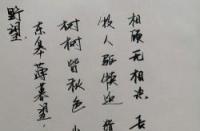 野望
东皋薄暮望，
树树皆秋色
牧人驱犊返
相顾无相识